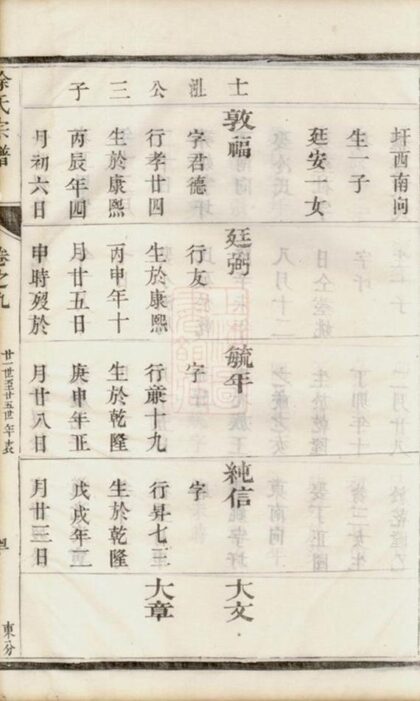 圩西南向
生一子
廷安一女
士
公
三
子
敦福
字君德
行孝廿四
生於康熙
丙辰年四
月初六日
廷弼
行友
生於康熙
丙申年十
月廿五日
申時歿於
毓年
字
行彛十九
生於乾隆
庚申年正
月廿八日
純信
字
行昇七三
生於乾隆
戊戌年二
月廿三日
大文
大章
徐氏宗譜
卷之九
廿一世至廿五世年表
東分